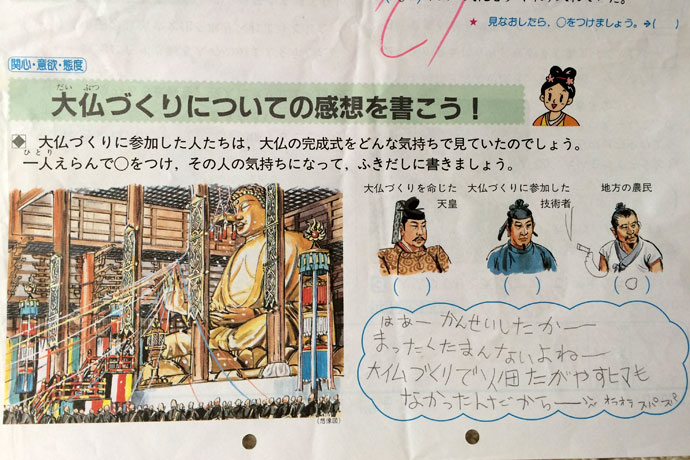 ★ 見なおしたら，○をつけましょう。→( )
関心・意欲・態度
だい ぶつ
大仏づくりについての感想を書こう！
◆ 大仏づくりに参加した人たちは，大仏の完成式をどんな気持ちで見ていたのでしょう。
ひとり
一人えらんで○をつけ，その人の気持ちになって，ふきだしに書きましょう。
大仏づくりを命じた 天皇
大仏づくりに参加した 技術者
地方の農民
( ) ( ) (○)
はぁー かんせいしたかー
まったくたまんないよねー
大仏づくりで畑たがやすヒマも
なかったんだからー オラオラ スパスパ
(想像図)